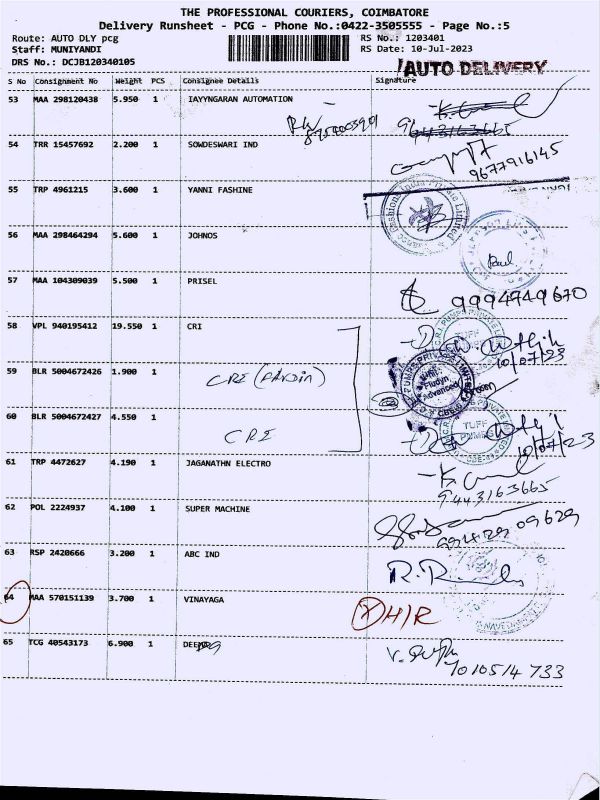 THE PROFESSIONAL COURIERS, COIMBATORE
Delivery Runsheet - PCG - Phone No.:0422-3505555 - Page No.:5
Route: AUTO DLY pcg RS No.: 1203401
Staff: MUNIYANDI RS Date: 10-Jul-2023
DRS No.: DCJB120340105
AUTO DELIVERY
S No Consignment No Weight PCS Consignee Details Signature
53 MAA 298120438 5.950 1 IAYYNGARAN AUTOMATION
9443163665
54 TRR 15457692 2.200 1 SOWDESWARI IND
9677916145
55 TRP 4961215 3.600 1 YANNI FASHINE
56 MAA 298464294 5.600 1 JOHNOS
57 MAA 104309039 5.500 1 PRISEL
9994949670
58 VPL 940195412 19.550 1 CRI
TUFF
10/07/23
59 BLR 5004672426 1.900 1
CRI
Fludyn
Advanced
60 BLR 5004672427 4.550 1
CRI
TUFF
PUMPS
10/07/23
61 TRP 4472627 4.190 1 JAGANATHN ELECTRO
9443163665
62 POL 2224937 4.100 1 SUPER MACHINE
09629
63 RSP 2420666 3.200 1 ABC IND
64 MAA 570151139 3.700 1 VINAYAGA
65 TCG 40543173 6.900 1
1010514733